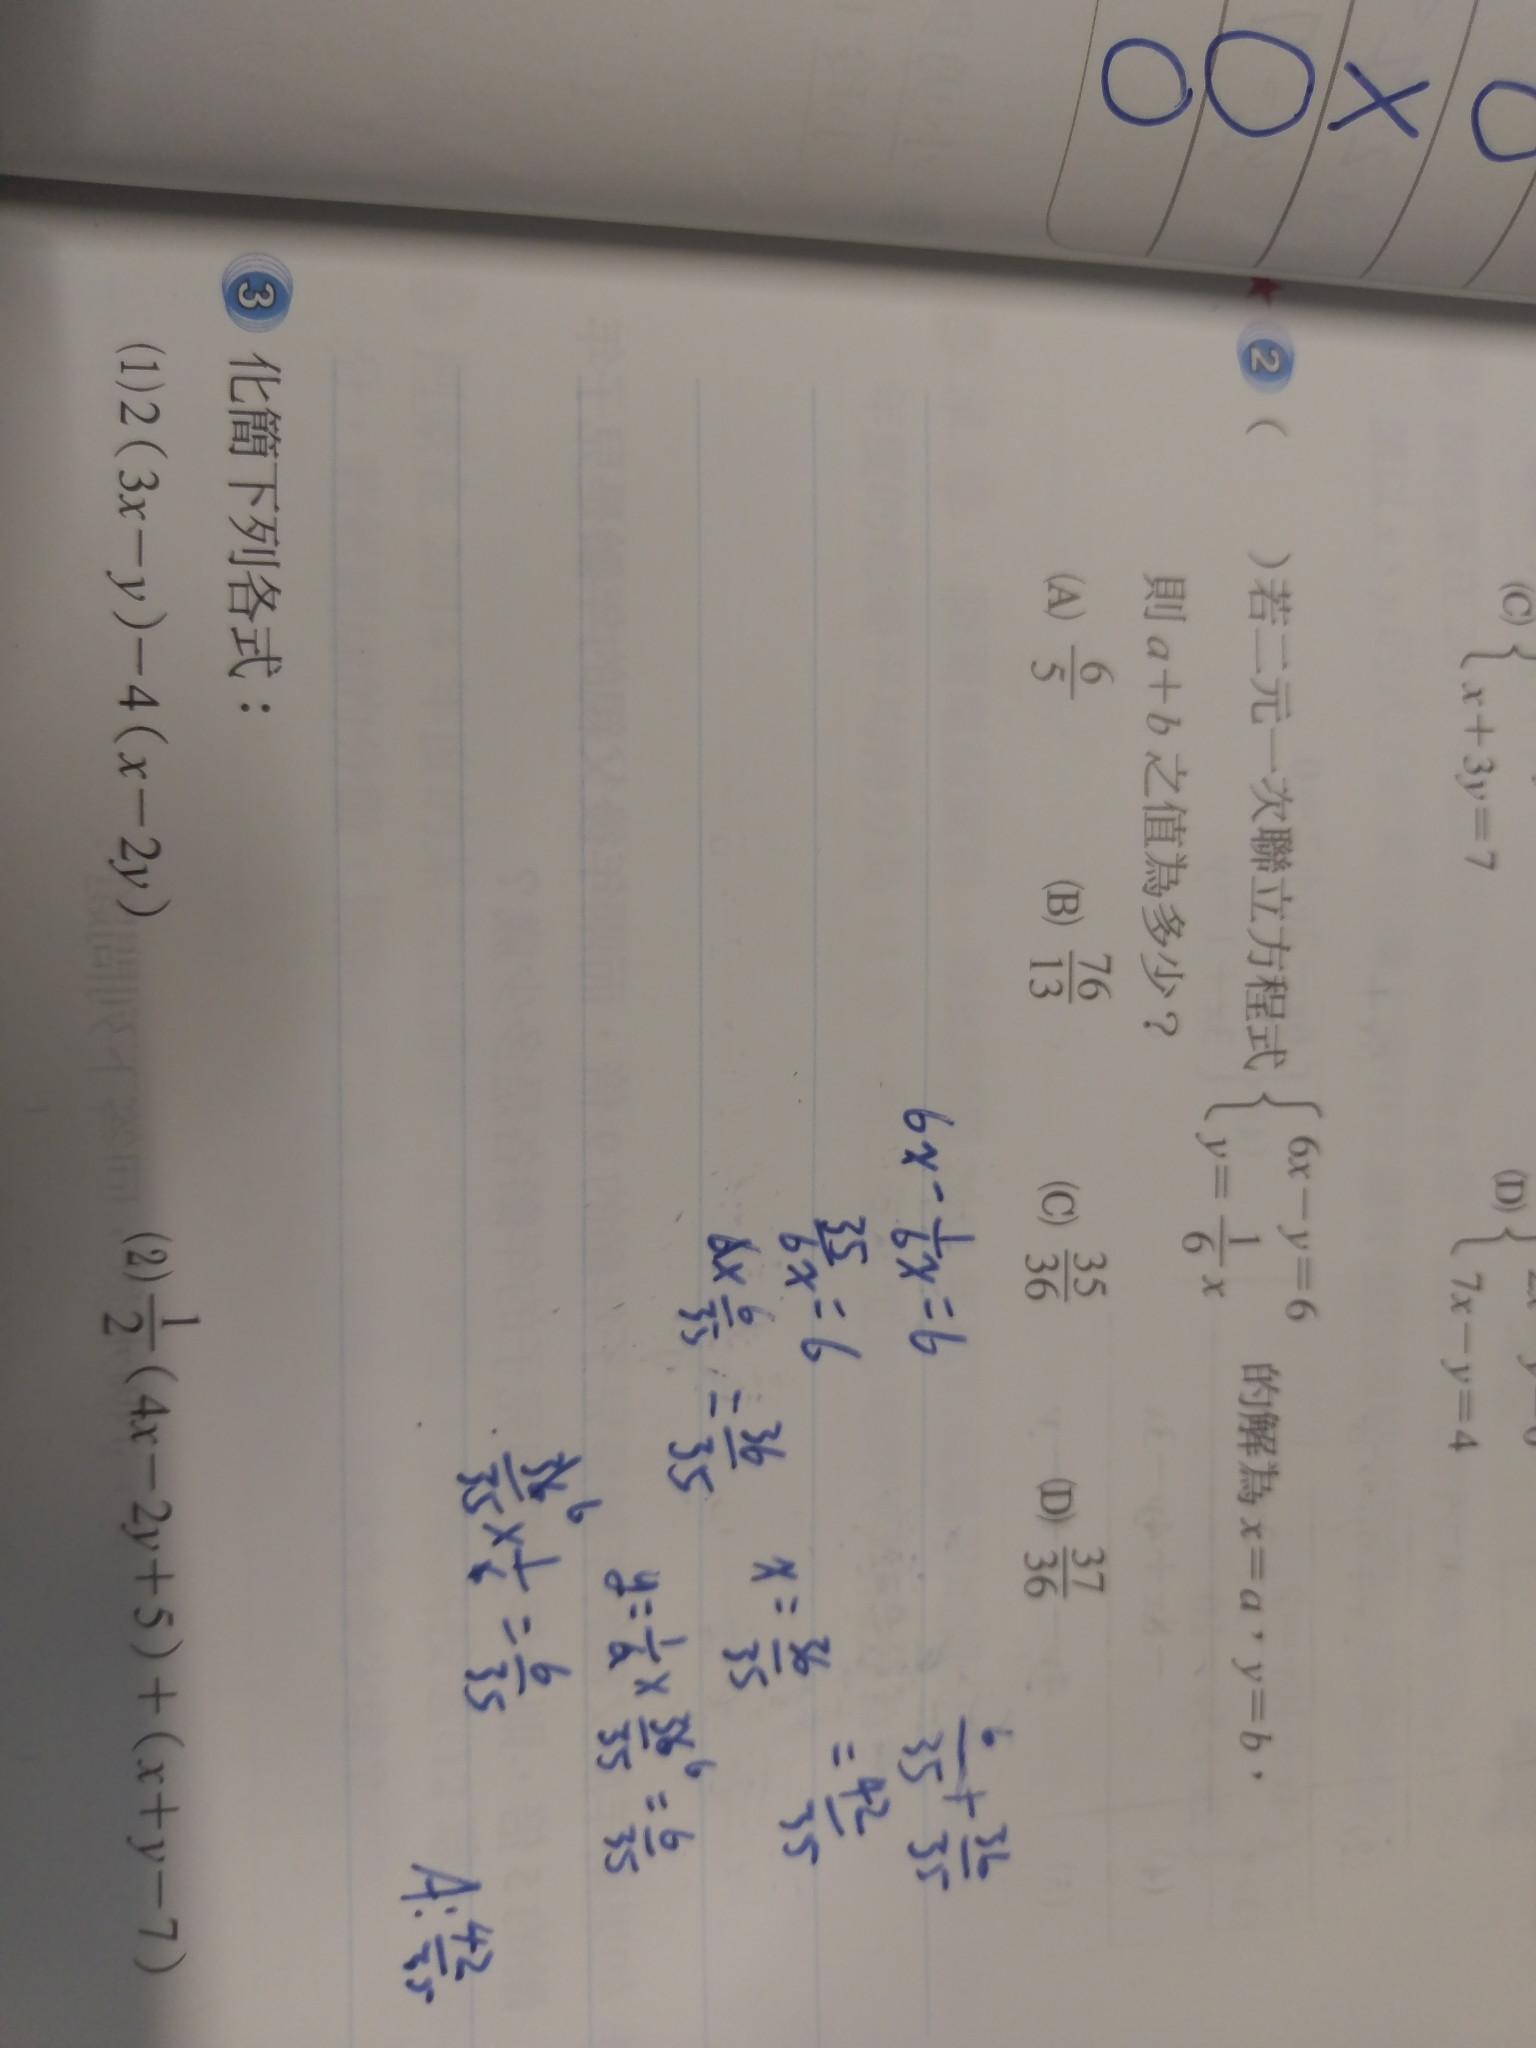 (C) { x+3y=7
(D) { 7x-y=4
2 ( )若二元一次聯立方程式 { 6x-y=6 的解為 x=a,y=b,
y=1/6 x
則 a+b 之值為多少?
(A) 6/5 (B) 76/13 (C) 35/36 (D) 37/36
6x-1/6x=6
35/6x=6
6×6/35=36/35
x=36/35
y=1/6×36/35=6/35
36/35×1/6=6/35
6/35+36/35
=42/35
A:42/35
3 化簡下列各式:
(1)2(3x-y)-4(x-2y) (2)1/2(4x-2y+5)+(x+y-7)